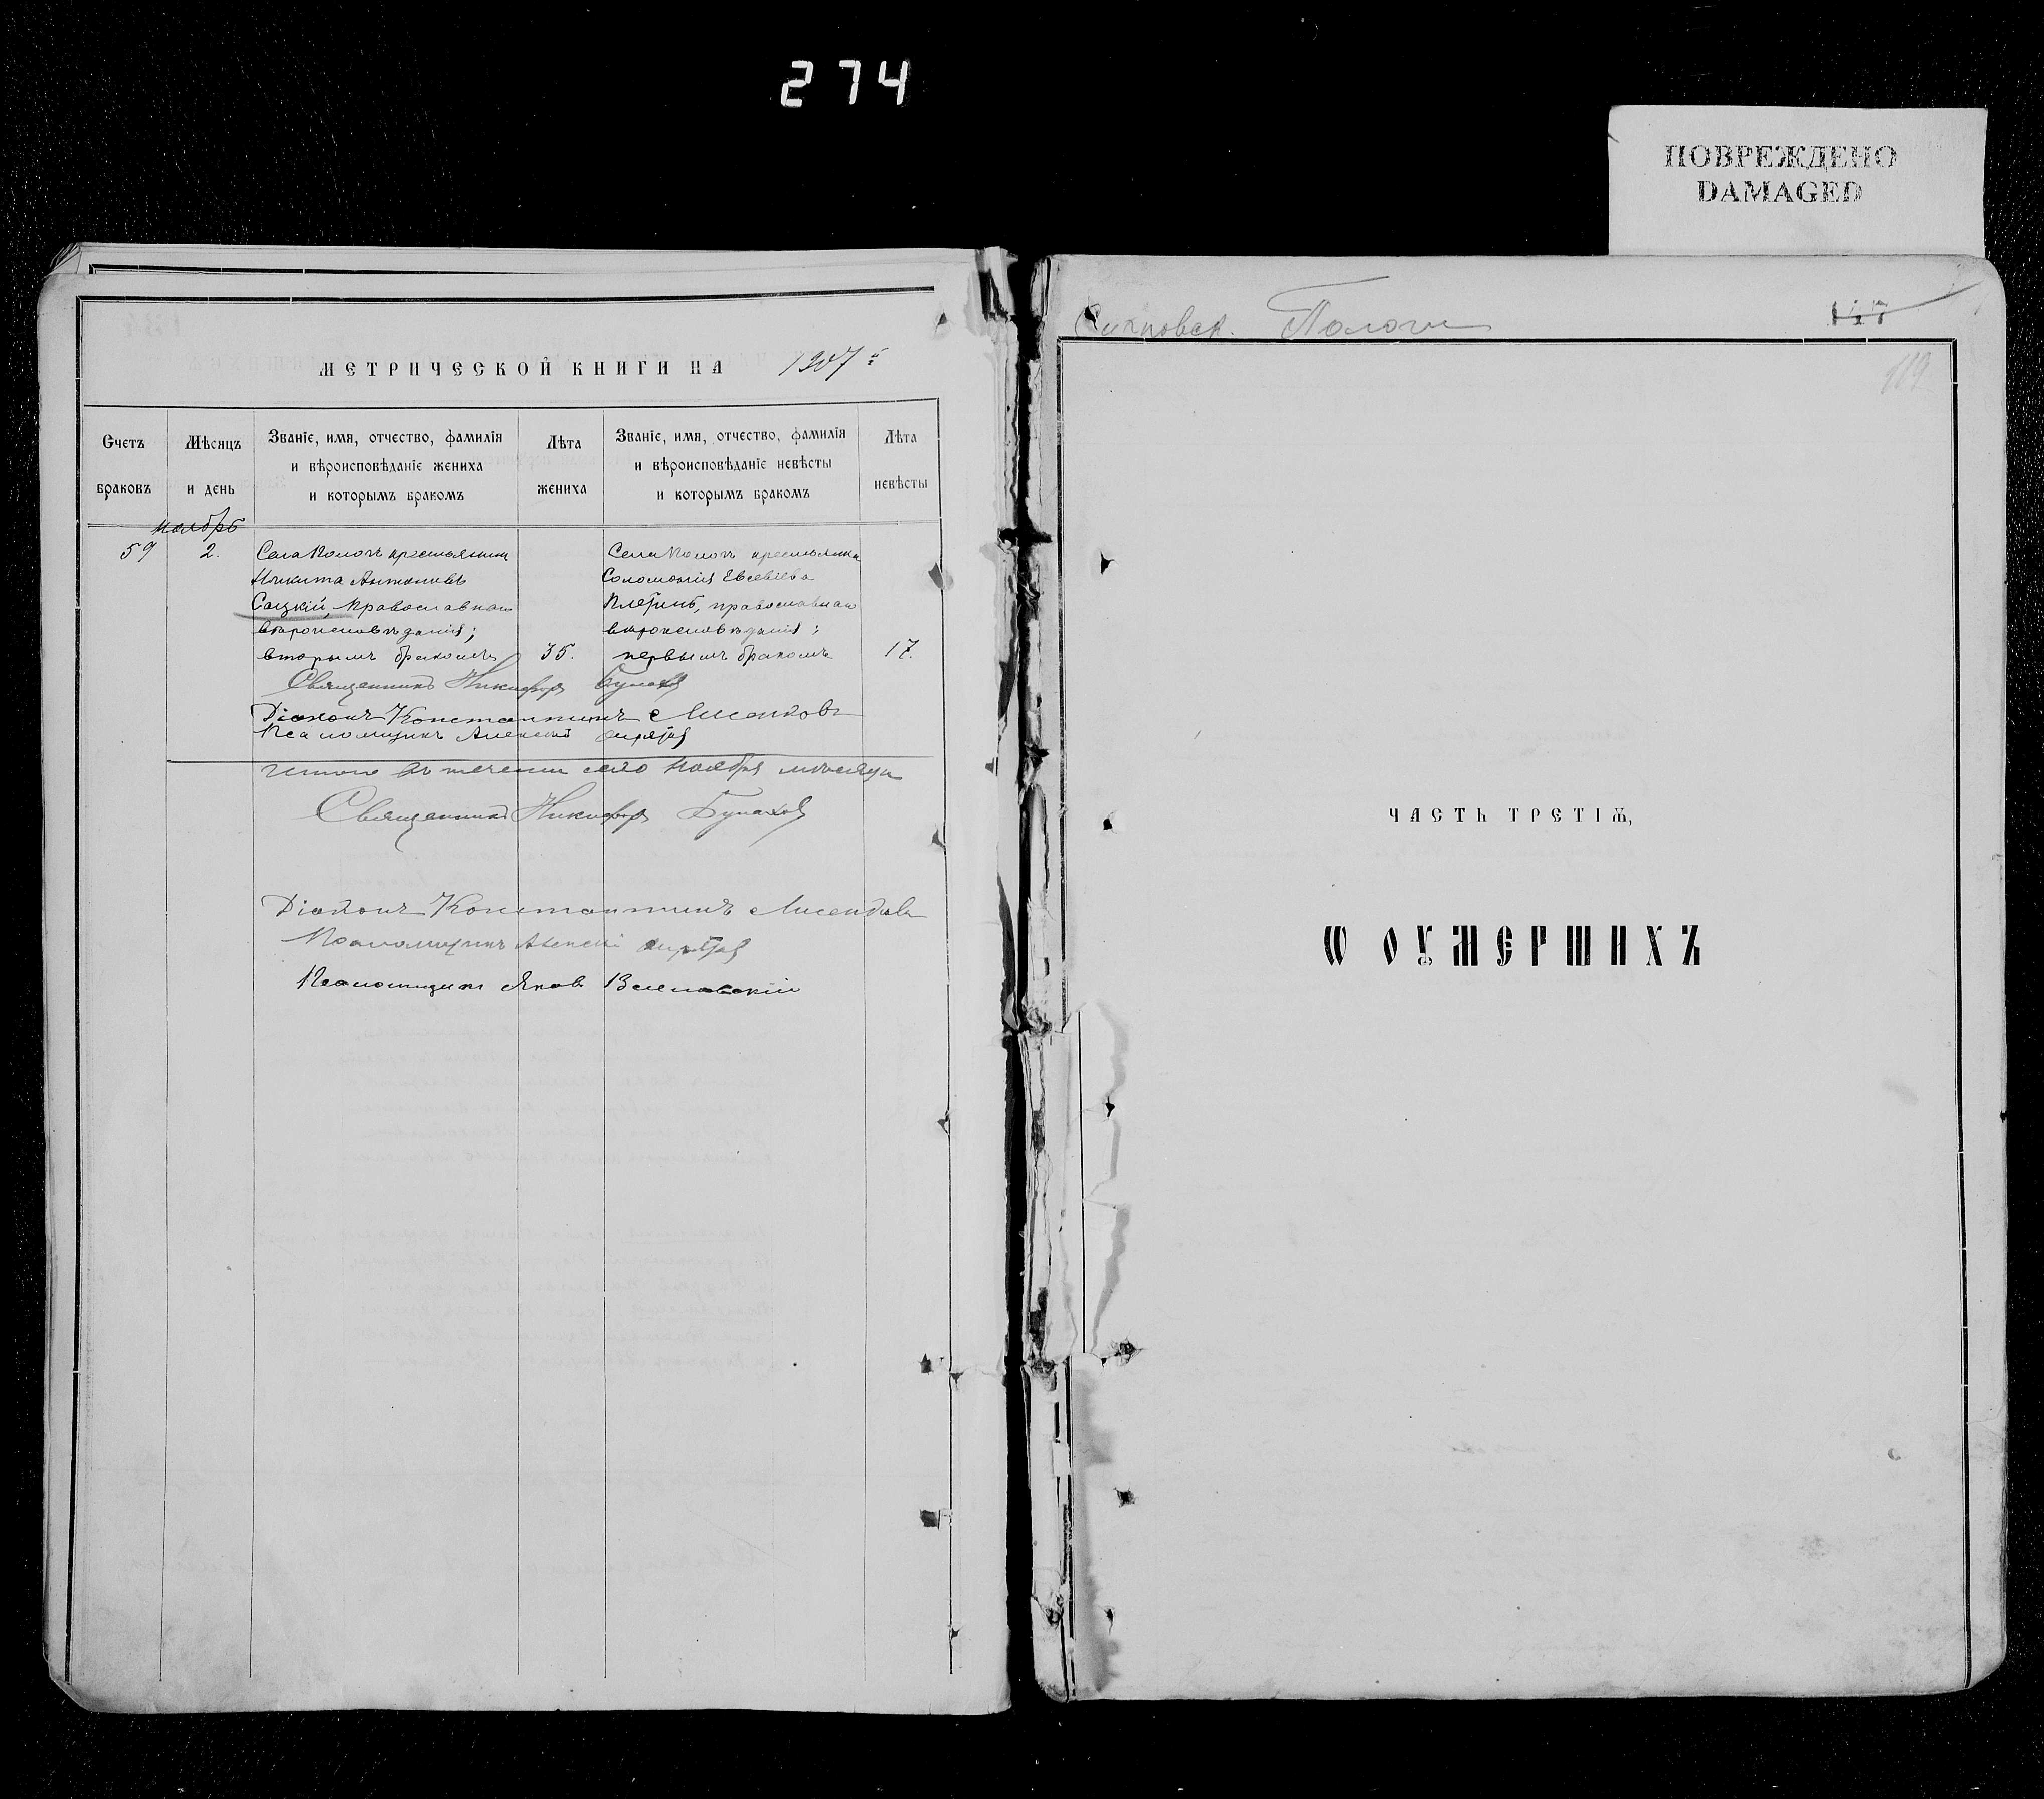 274
ПОВРЕЖДЕНО
DAMAGED
МЕТРИЧЕСКОЙ КНИГИ НА 1907 й
Счетъ браковъ
Мѣсяцъ и день
Званїе, имя, отчество, фамилїя
и вѣроисповѣданїе жениха
и которымъ бракомъ
Лѣта жениха
Званїе, имя, отчество, фамилїя
и вѣроисповѣданїе невѣсты
и которымъ бракомъ
Лѣта невѣсты
Ноябрь
59
2.
Села Пологъ крестьянинъ
Никита Антоновъ
Сацкій, православнаго
вѣроисповѣданія;
вторымъ бракомъ
35.
Села Пологъ крестьянка
Соломонія Евсевіева
православнаго
вѣроисповѣданія;
первымъ бракомъ
17.
Священникъ Никифоръ
Діаконъ Константинъ
Псаломщикъ Алексій
Итого въ теченіи сего Ноября мѣсяца
Священникъ Никифоръ
Діаконъ Константинъ
Псаломщикъ Алексій
Псаломщикъ Яковъ
Пологи
117
119
ЧАСТЬ ТРЕТІѦ,
Ѡ ОУМЕРШИХЪ